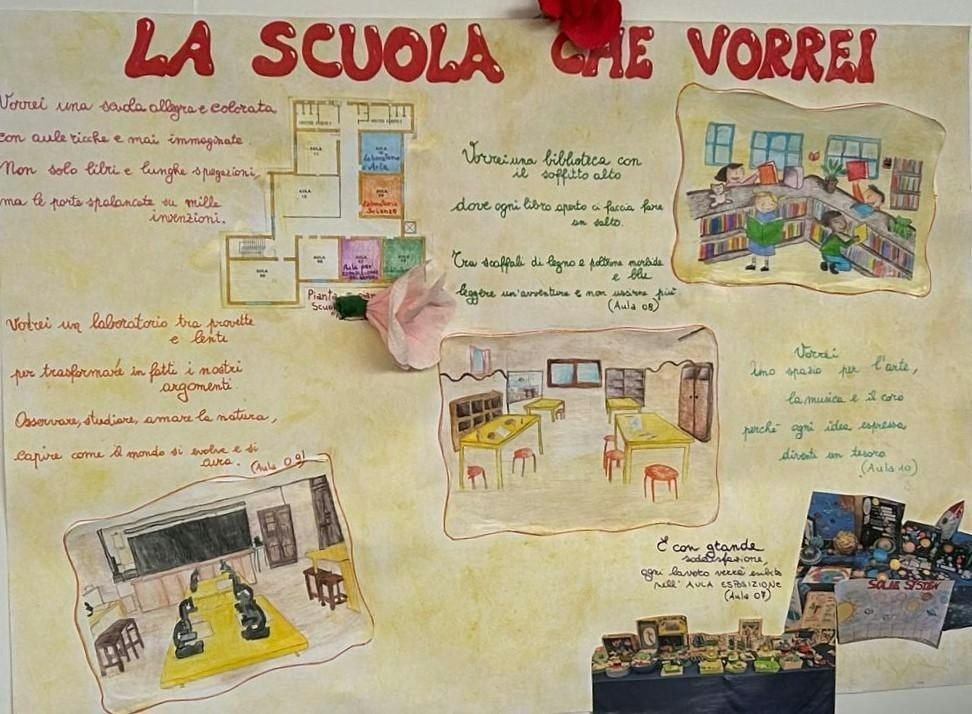 LA SCUOLA CHE VORREI
Vorrei una scuola allegra e colorata
con aule ricche e mai immaginate.
Non solo libri e lunghe spiegazioni,
ma le porte spalancate su mille
invenzioni.
AULA 11
AULA 12
Laboratorio
Arte
Laboratorio
Scienze
AULA 08
Aula per
Pianta
Scuo
Vorrei una biblioteca con
il soffitto alto
dove ogni libro aperto ci faccia fare
un salto.
Tra scaffali di legno e poltrone morbide
e blu
leggere un'avventura e non uscirne più
(Aula 08)
Vorrei un laboratorio tra provette
e lenti
per trasformare in fatti i nostri
argomenti
Osservare, studiare, amare la natura,
capire come il mondo si evolve e si
cura.
(Aula 09)
Vorrei
uno spazio per l'arte,
la musica e il coro
perché ogni idea espressa
diventi un tesoro
(Aula 10)
E con grande
soddisfazione,
ogni lavoro verrà esibito
nell'AULA ESPOSIZIONE
(Aula 07)
SOLAR SYSTEM